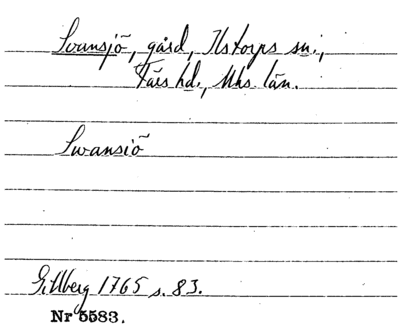 Svansjö, gård, Ilstorps sn.,
Färs hd., Mhs län.
Swansiö
Gillberg 1765 s. 83.
Nr 5583.